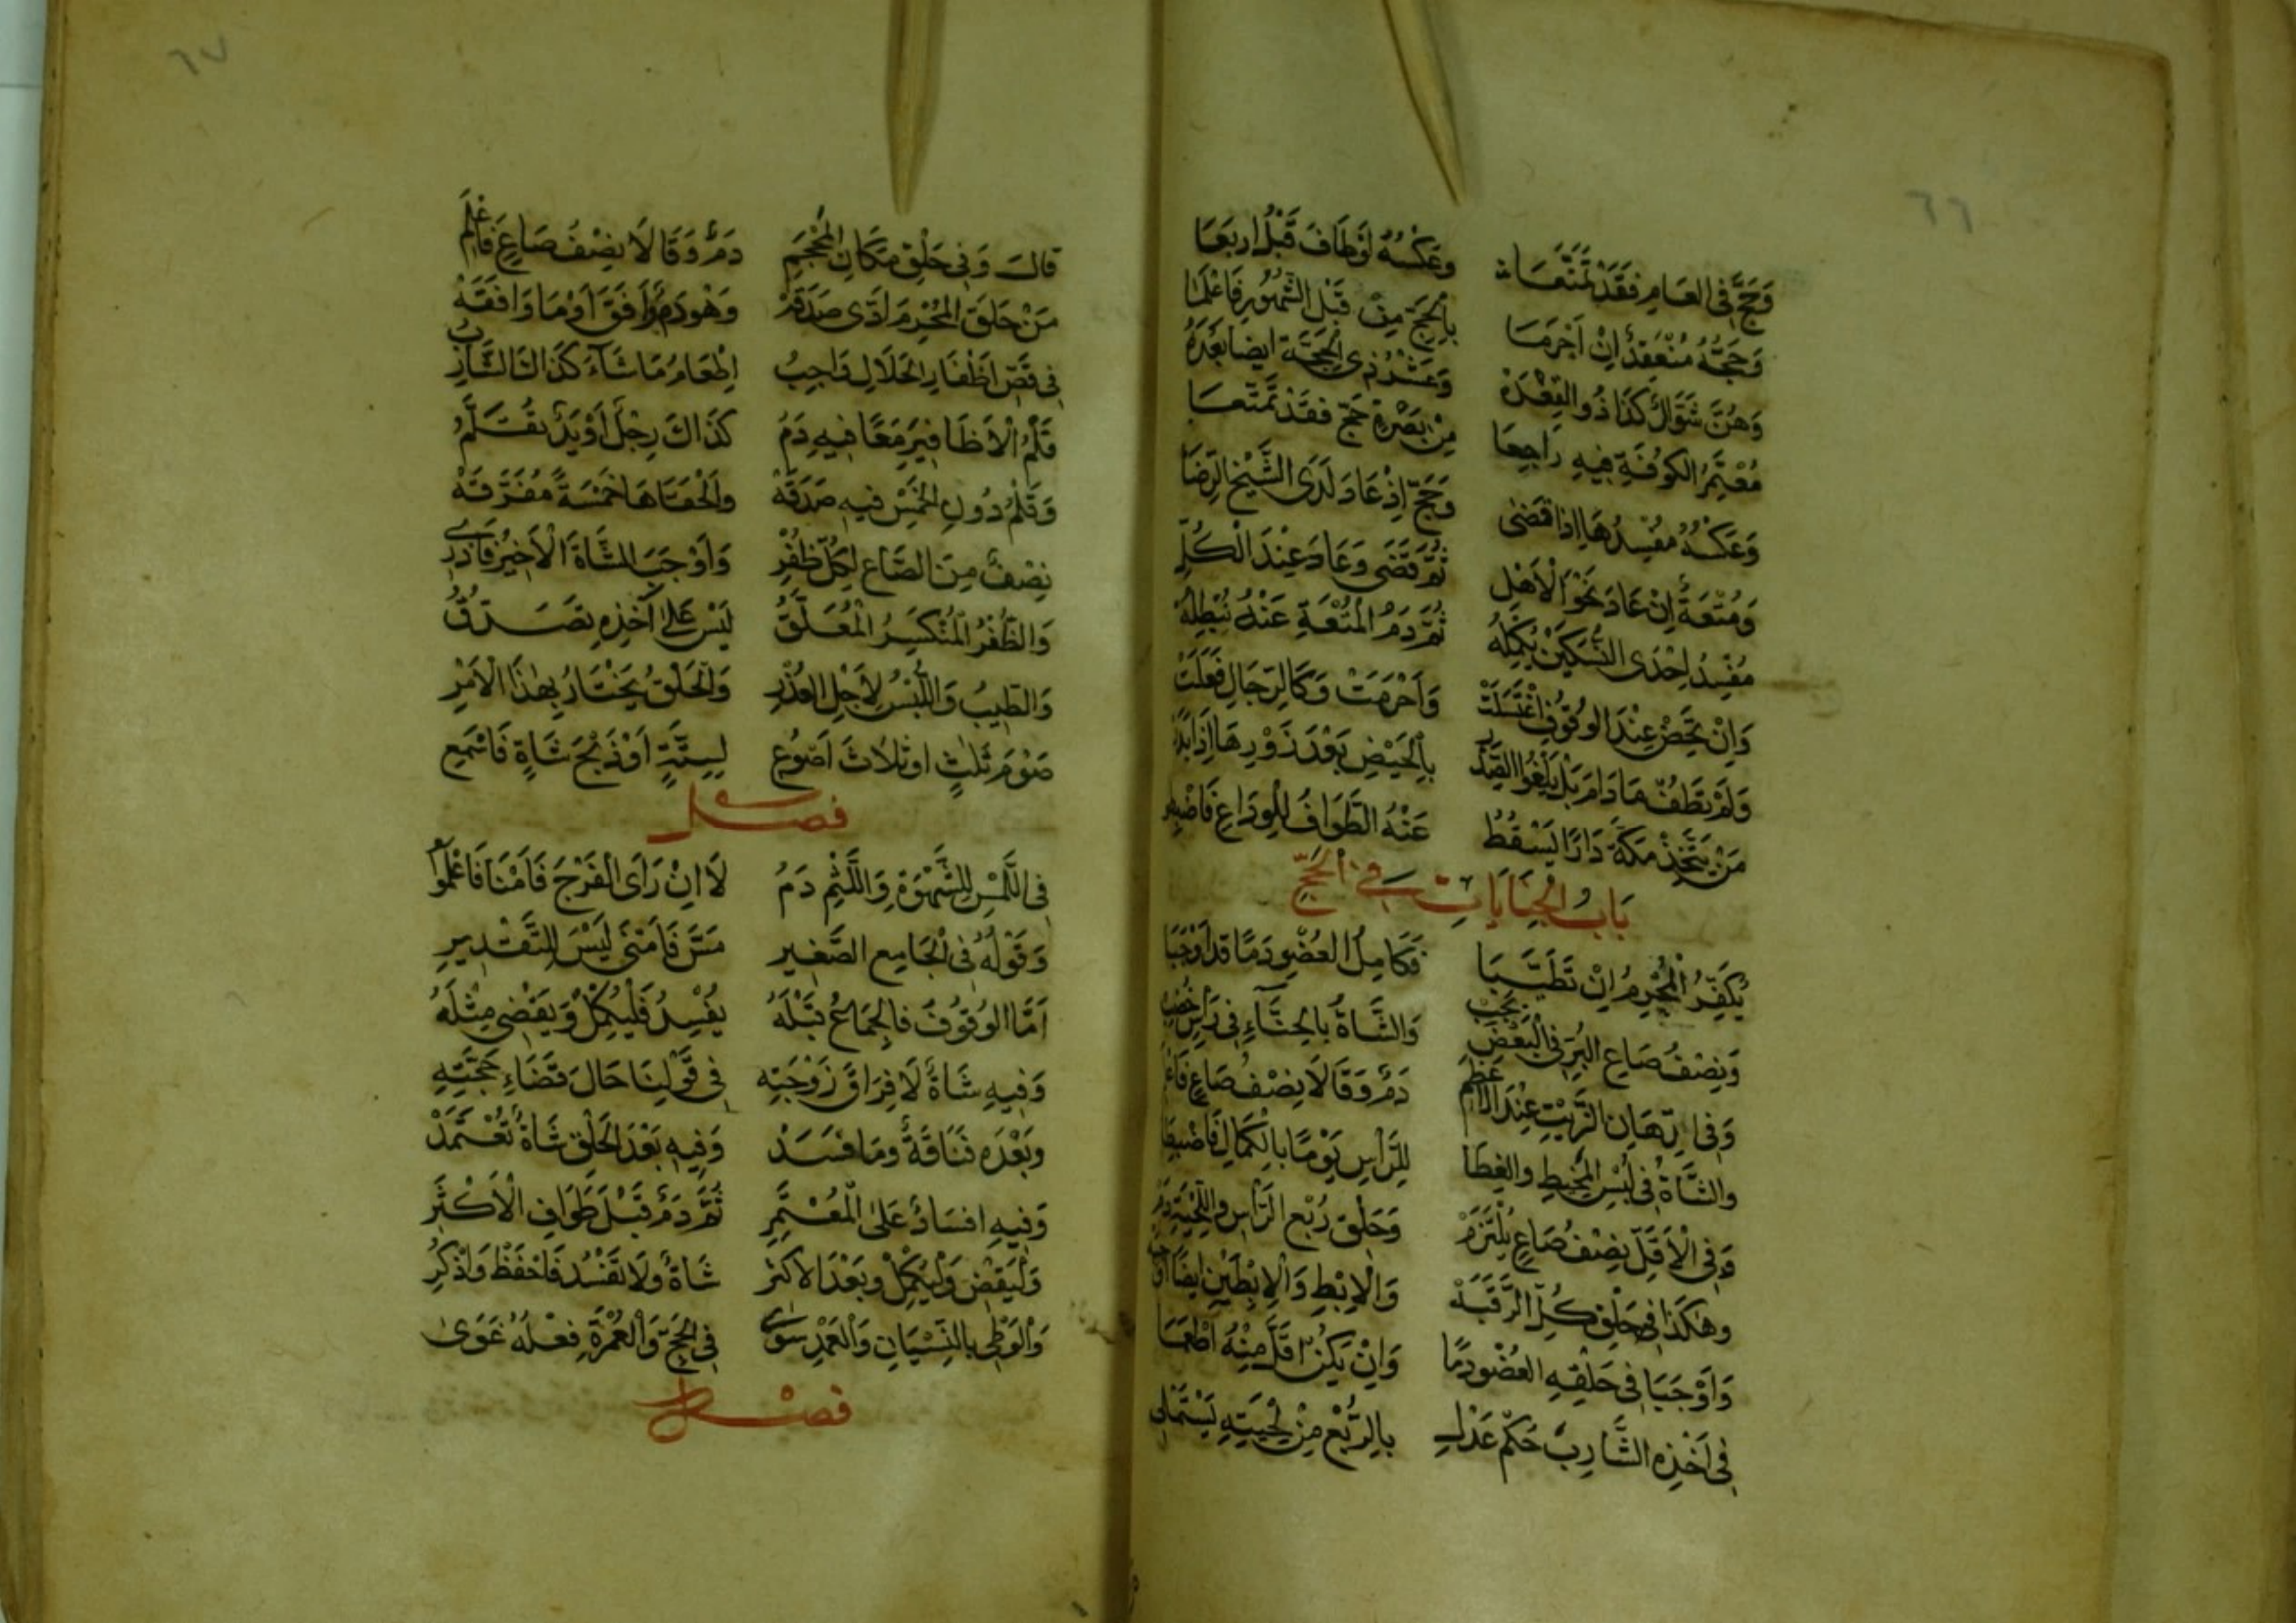 ٦٦
وَحَجَّ فِي العَامِ فَقَدْ تَمَتَّعَا وَعَكْسُهُ لَوْ طَافَ قَبْلُ اربَعَا
وَحَجُّهُ مُنْعَقِدٌ اِنْ اَحْرَمَا بِالْحَجِّ مِنْ قَبْلِ الشُّهُورِ فَاعْلَمَا
وَهُنَّ شَوَّالٌ كَذَا ذُو القِعْدَهْ وَعَشْرُ ذِي الْحِجَّةِ ايضا بَعْدَهُ
مُعْتَمِرُ الكُوفَةِ فِيهِ رَاجِعَا مِنْ بَصْرَةٍ حَجَّ فَقَدْ تَمَتَّعَا
وَعَكْسُهُ مُفْسِدُهَا اِذَا قَضَى وَحَجَّ اِذْ عَادَ لَدَى الشَّيْخِ الرِّضَا
وَمُتْعَةٌ اِنْ عَادَ نَحْوَ الْاَهْلِ ثُمَّ قَضَى وَعَادَ عِنْدَ الْكُلِّ
مُفْسِدُ اِحْدَى النُّسُكَيْنِ يُكْمِلُهْ ثُمَّ دَمُ الْمُتْعَةِ عَنْهُ نُبْطِلُهْ
وَاِنْ تَحِضْ عِنْدَ الوُقُوفِ اغْتَسَلَتْ وَاَحْرَمَتْ وَكَالرِّجَالِ فَعَلَتْ
وَلَمْ تَطُفْ مَا دَامَ بَلْ يَلْغُو الصَّدَرْ بِالْحَيْضِ بَعْدَ زَوْرِهَا اِذَا
مَنْ يَتَّخِذْ مَكَّةَ دَارًا يَسْقُطُ عَنْهُ الطَّوَافُ لِلْوَدَاعِ
بَابُ الْجِنَايَاتِ فِي الْحَجِّ
يُكَفِّرُ الْمُحْرِمُ اِنْ تَطَيَّبَا فَكَامِلُ العُضْوِ دَمًا قَدْ اَوْجَبَا
وَنِصْفُ صَاعِ البُرِّ فِي الْبَعْضِ يَجِبْ وَالشَّاةُ بِالحِنَّاءِ فِي رَاْسٍ خُضِبْ
وَفِي ادِّهَانِ الزَّيْتِ عِنْدَ الْاَعْظَمِ دَمٌ وَقَالَا نِصْفُ صَاعٍ
وَالشَّاةُ فِي لُبْسِ الْمَخِيطِ وَالغِطَا لِلرَّاْسِ يَوْمًا بِالكَمَالِ
وَفِي الْاَقَلِّ نِصْفُ صَاعٍ يُلْتَزَمْ وَحَلْقُ رُبْعِ الرَّاْسِ وَاللِّحْيَةِ دَمْ
وَهٰكَذَا فِي حَلْقِ كُلِّ الرَّقَبَهْ وَالْاِبْطِ وَالْاِبْطَيْنِ اَيْضًا
وَاَوْجَبَا فِي حَلْقِهِ العُضْوَ دَمًا وَاِنْ يَكُنْ اَقَلَّ مِنْهُ اَطْعَمَا
فِي اَخْذِهِ الشَّارِبَ حُكْمُ عَدْلِ بِالرُّبْعِ مِنْ لِحْيَتِهِ
٦٧
قَالَ وَفِي حَلْقِ مَكَانِ الْمَحْجَمِ دَمٌ وَقَالَا نِصْفُ صَاعٍ فَاعْلَمِ
مَنْ حَلَقَ الْمُحْرِمَ اَدَّى صَدَقَهْ وَهُوَ دَمٌ وَافَقَ اَوْ مَا وَافَقَهْ
فِي قَصِّ اَظْفَارِ الْحَلَالِ وَاجِبُ اِطْعَامُ مَا شَاءَ كَذَاكَ الشَّارِبُ
قَلْمُ الْاَظَافِيرِ مَعًا فِيهِ دَمُ كَذَاكَ رِجْلٌ اَوْ يَدٌ تُقَلَّمُ
وَقَلْمُ دُونِ الْخَمْسِ فِيهِ صَدَقَهْ وَاَلْحَقَاهَا خَمْسَةً مُفَرَّقَهْ
نِصْفٌ مِنَ الصَّاعِ لِكُلِّ ظُفْرِ وَاَوْجَبَ الشَّاةَ الْاَخِيرُ فَادْرِ
وَالظُّفْرُ الْمُنْكَسِرُ الْمُعَلَّقُ لَيْسَ عَلَى آخِذِهِ تَصَدُّقُ
وَالطِّيبُ وَاللُّبْسُ لِاَجْلِ العُذْرِ وَالْحَلْقُ يَخْتَارُ بِهٰذَا الْاَمْرِ
صَوْمَ ثَلٰثٍ او ثَلَاثَ اَصْوُعِ لِسِتَّةٍ اَوْ ذَبْحَ شَاةٍ فَاسْمَعِ
فصل
فِي اللَّمْسِ لِلشَّهْوَةِ وَاللَّثْمِ دَمُ لَا اِنْ رَاَى الْفَرْجَ فَاَمْنَا فَاعْلَمُوا
وَقَوْلُهُ فِي الْجَامِعِ الصَّغِيرِ مَسَّ فَاَمْنَى لَيْسَ لِلتَّقْدِيرِ
اَمَّا الوُقُوفُ فَالْجِمَاعُ قَبْلَهُ يُفْسِدُ فَلْيُكْمِلْ وَيَقْضِي مِثْلَهُ
وَفِيهِ شَاةٌ لَا فِرَاقَ زَوْجَتِهِ فِي قَوْلِنَا حَالَ قَضَاءِ حَجَّتِهِ
وَبَعْدَهُ فَنَاقَةٌ وَمَا فَسَدْ وَفِيهِ بَعْدَ الْحَلْقِ شَاةٌ تُعْتَمَدْ
وَفِيهِ اِفْسَادٌ عَلَى الْمُعْتَمِرِ ثُمَّ دَمٌ قَبْلَ طَوَافِ الْاَكْثَرِ
وَلْيَقْضِ وَلْيُكْمِلْ وَبَعْدَ الْاَكْثَرِ شَاةٌ وَلَا تَفْسُدُ فَاحْفَظْ وَاذْكُرِ
وَالْوَطْئُ بِالنِّسْيَانِ وَالْعَمْدِ سَوَى فِي الْحَجِّ وَالْعُمْرَةِ فِعْلُهُ غَوَى
فصل